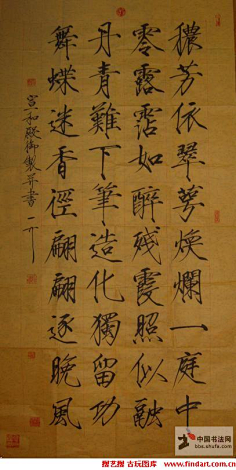 穠芳依翠萼煥爛一庭中
零露霑如醉殘霞照似融
丹青難下筆造化獨留功
舞蝶迷香徑翩翩逐晚風
宣和殿御製并書
中国书法网
www.findart.com.cn
www.findart.com.cn